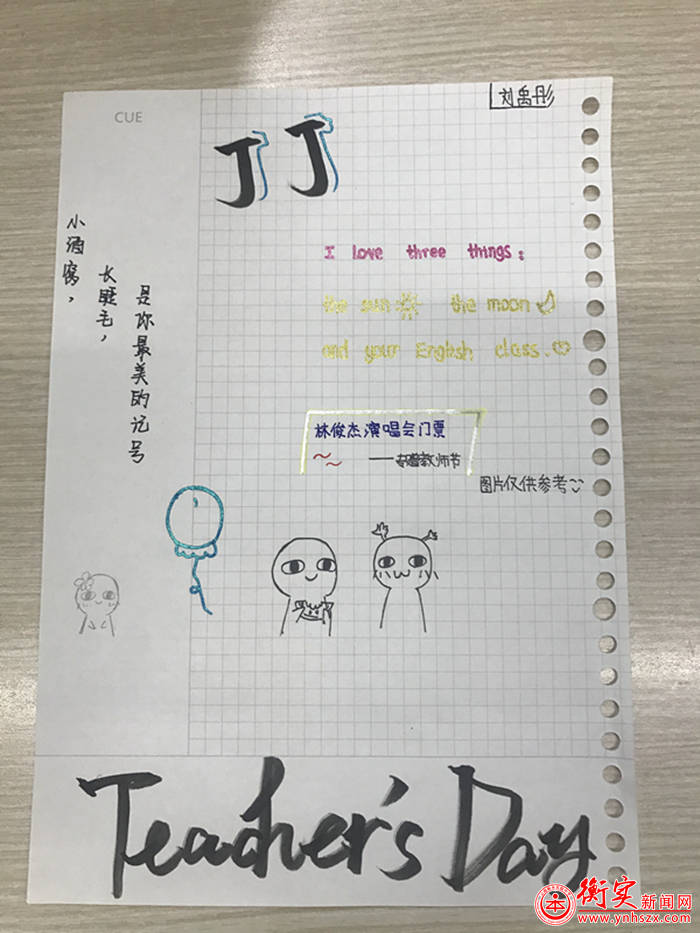 CUE
刘禹彤
JJ
小酒窝，
长睫毛，
是你最美的记号
I love three things:
the sun the moon
and your English class.
林俊杰演唱会门票
——赠教师节
图片仅供参考
Teacher's Day
衡实新闻网
www.ynhszx.com